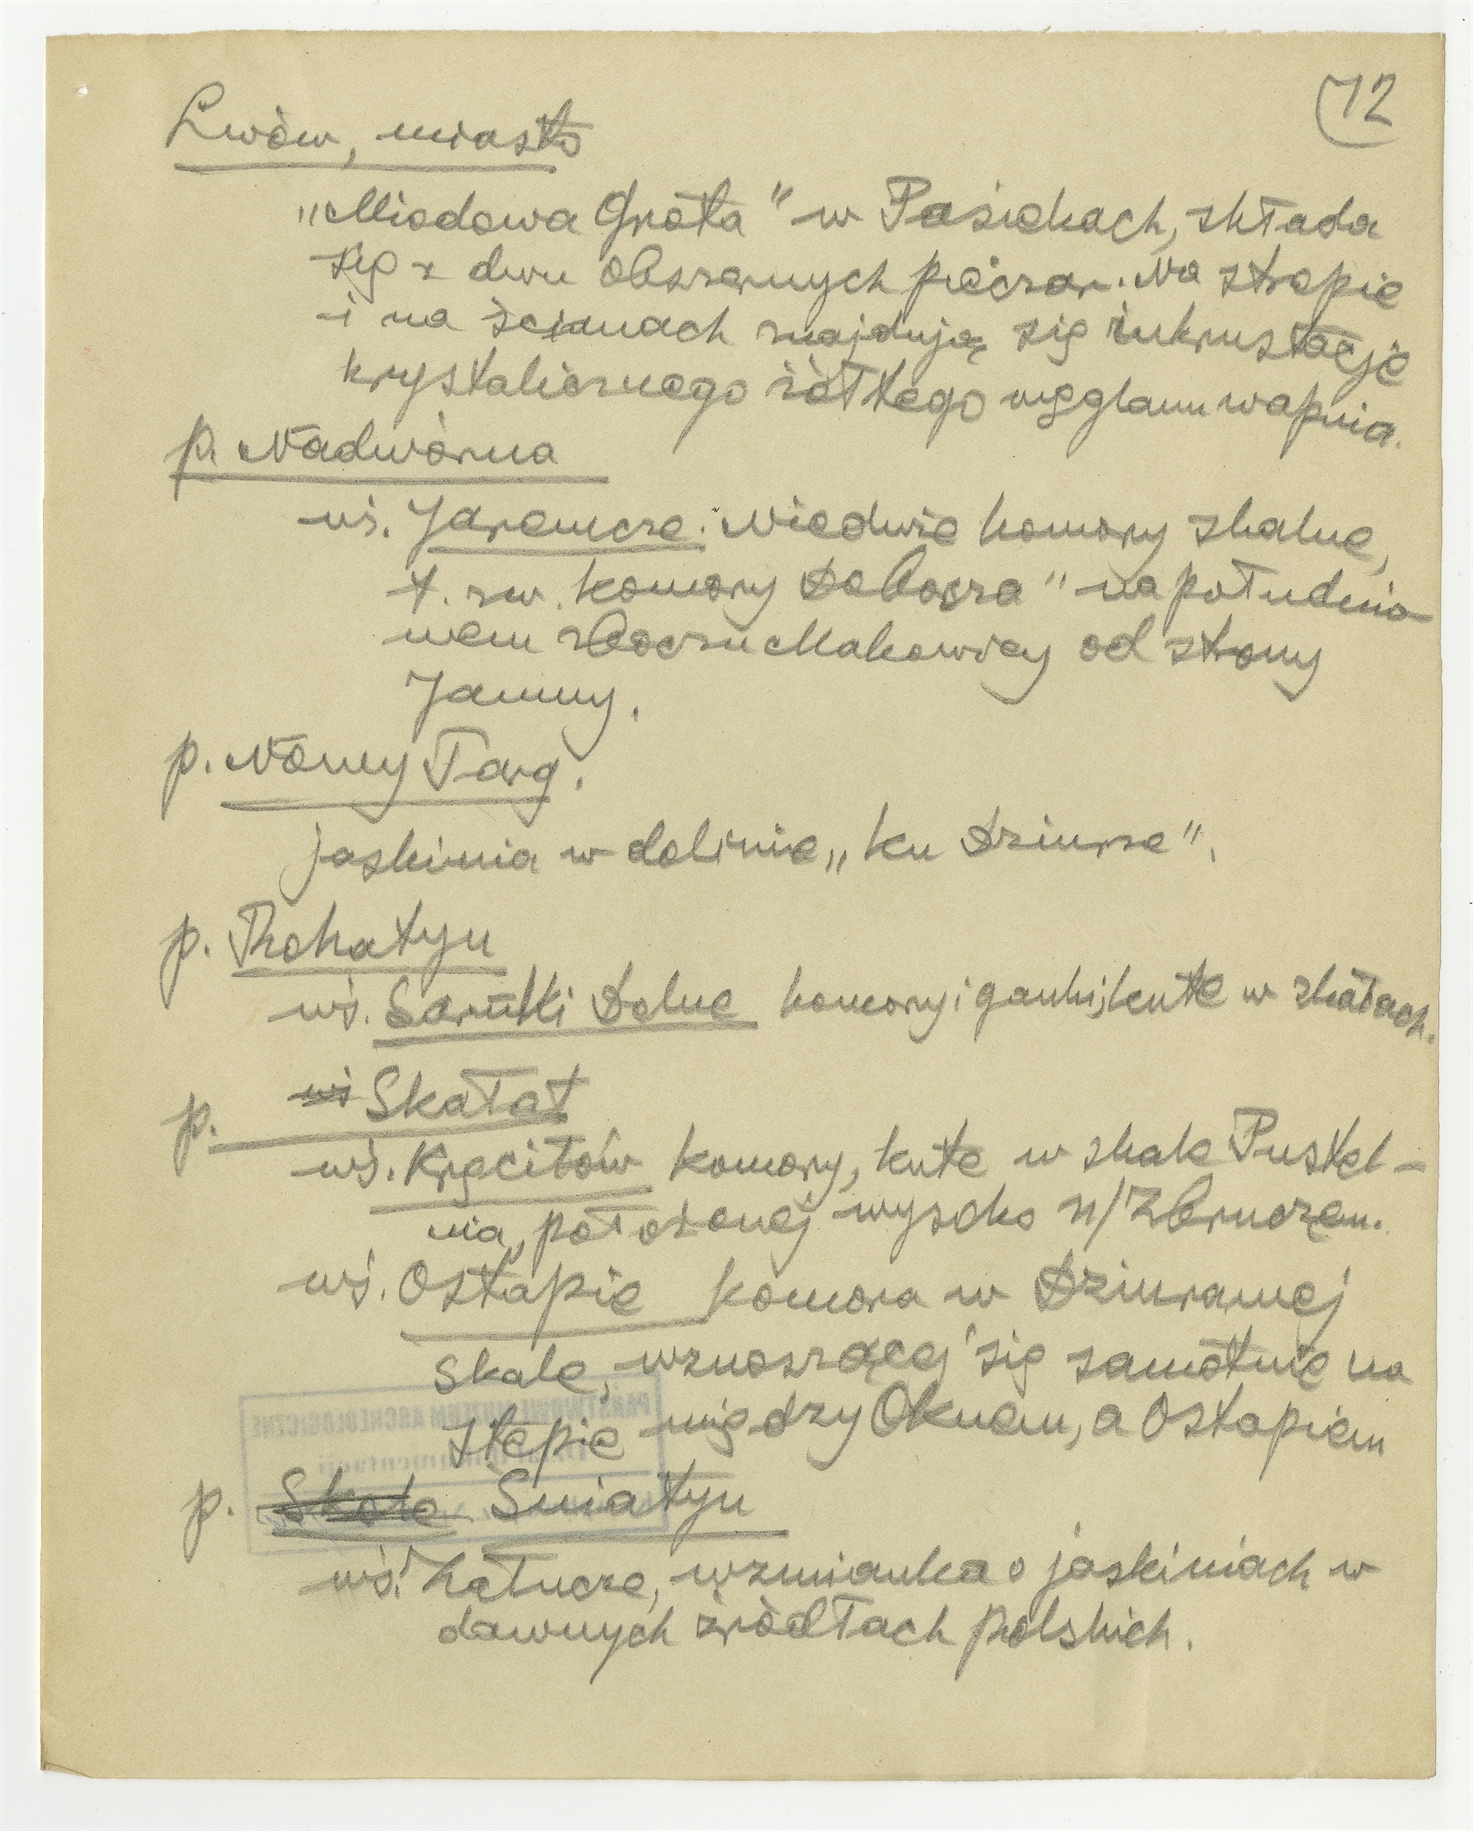 72
Lwów, miasto
„Miodowa Grota" w Pasiekach, składa
się z dwu obszernych pieczar. Na stropie
i na ścianach znajdują się inkrustacje
krystalicznego żółtego węglanu wapnia.
p. Nadwórna
wś. Jaremcze. Niedwie komory skalne,
t. zw. komory Dobosza" na południo-
wem zboczu Makowicy od strony
Jamny.
p. Nowy Targ.
jaskinia w dolinie „ku Dziurze".
p. Rohatyn
wś. Sarnki Dolne komory i ganki, kute w skałach.
p. wś Skałat
wś. Kręciłów komory, kute w skale Pustel-
nia, położonej wysoko n/Zbruczem.
wś. Ostapie komora w Dziurawej
Skale, wznoszącej się samotnie na
stepie między Oknem, a Ostapiem
PAŃSTWOWE MUZEUM ARCHEOLOGICZNE
Dział Dokumentacji
p. Skole Śniatyn
wś. Załucze, wzmianka o jaskiniach w
dawnych źródłach polskich.